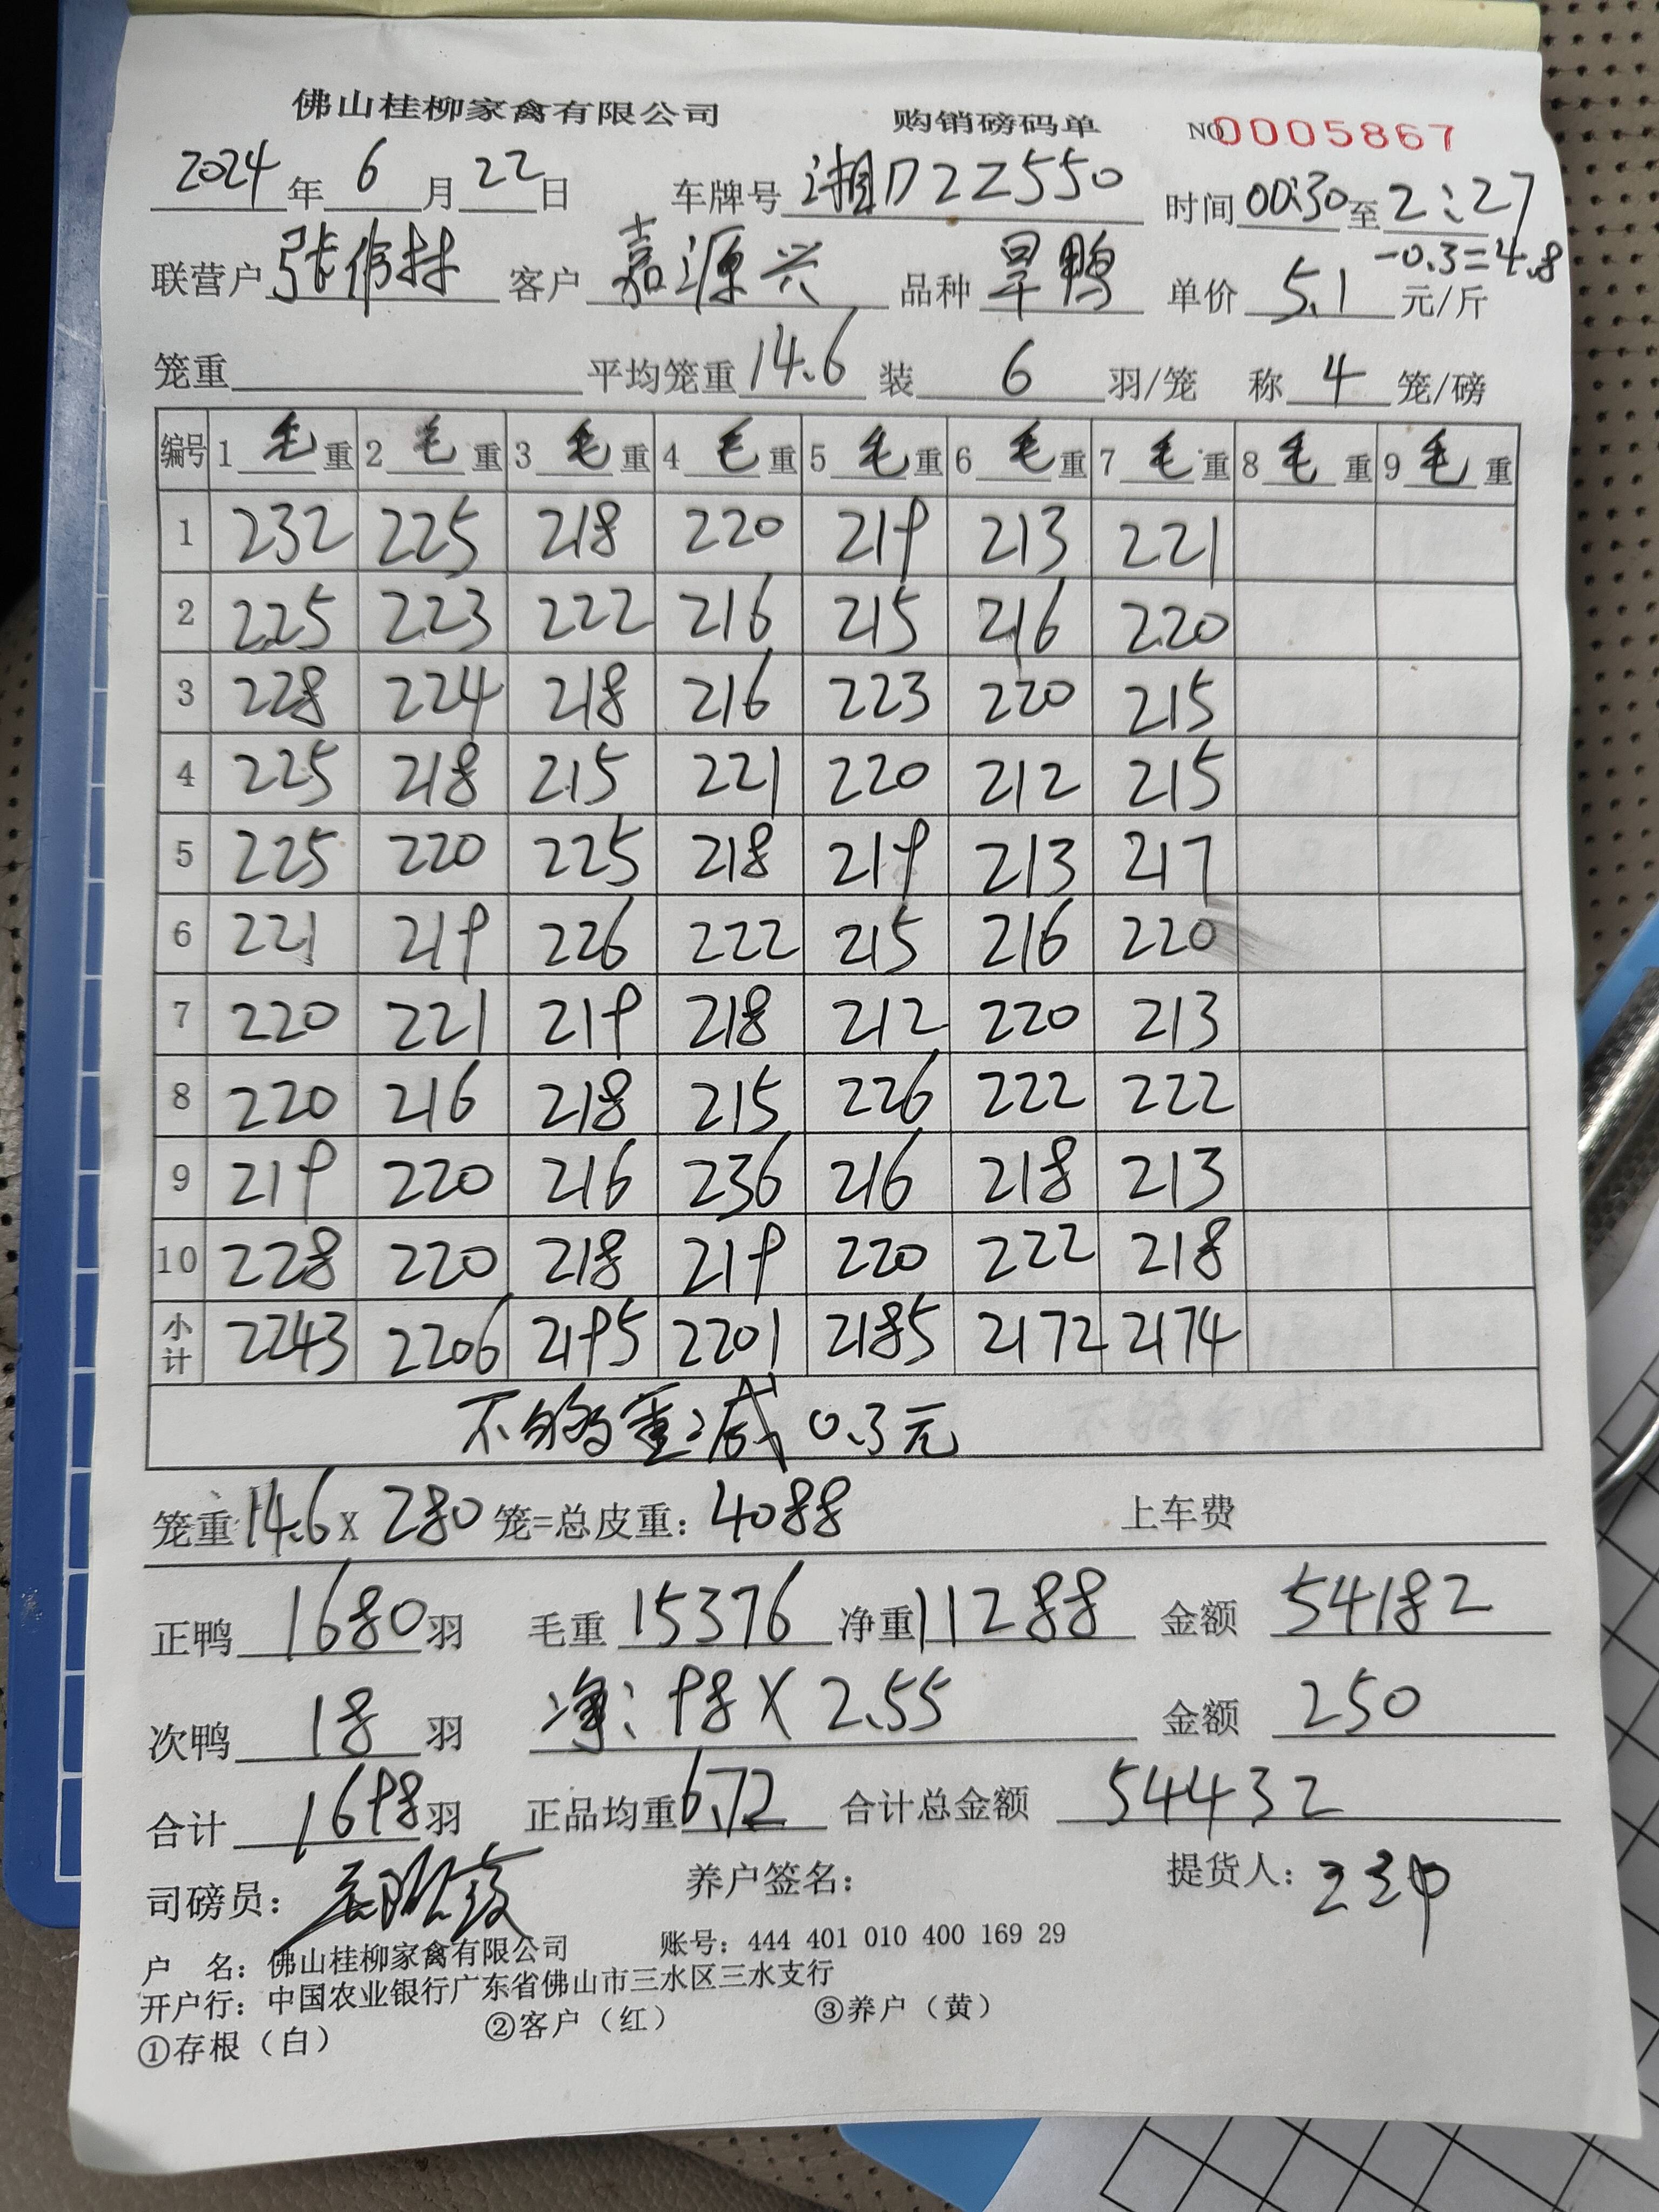 佛山桂柳家禽有限公司 购销磅码单 NO 0005867
2024年6月22日 车牌号 湘D2Z550 时间 00:30 至 2:27
-0.3=4.8
联营户 张伟林 客户 嘉源兴 品种 旱鸭 单价 5.1 元/斤
笼重 平均笼重 14.6 装 6 羽/笼 称 4 笼/磅
编号 1 毛重 2 毛重 3 毛重 4 毛重 5 毛重 6 毛重 7 毛重 8 毛重 9 毛重
1 232 225 218 220 219 213 221
2 225 223 222 216 215 216 220
3 228 224 218 216 223 220 215
4 225 218 215 221 220 212 215
5 225 220 225 218 219 213 217
6 221 219 226 222 215 216 220
7 220 221 219 218 212 220 213
8 220 216 218 215 226 222 222
9 219 220 216 236 216 218 213
10 228 220 218 219 220 222 218
小计 2243 2206 2195 2201 2185 2172 2174
不够重减0.3元
笼重 14.6 x 280 笼=总皮重：4088 上车费
正鸭 1680 羽 毛重 15376 净重 11288 金额 54182
次鸭 18 羽 净：98 X 2.55 金额 250
合计 1698 羽 正品均重 6.72 合计总金额 54432
司磅员： 养户签名： 提货人：
户 名：佛山桂柳家禽有限公司 账号：444 401 010 400 169 29
开户行：中国农业银行广东省佛山市三水区三水支行
①存根（白） ②客户（红） ③养户（黄）